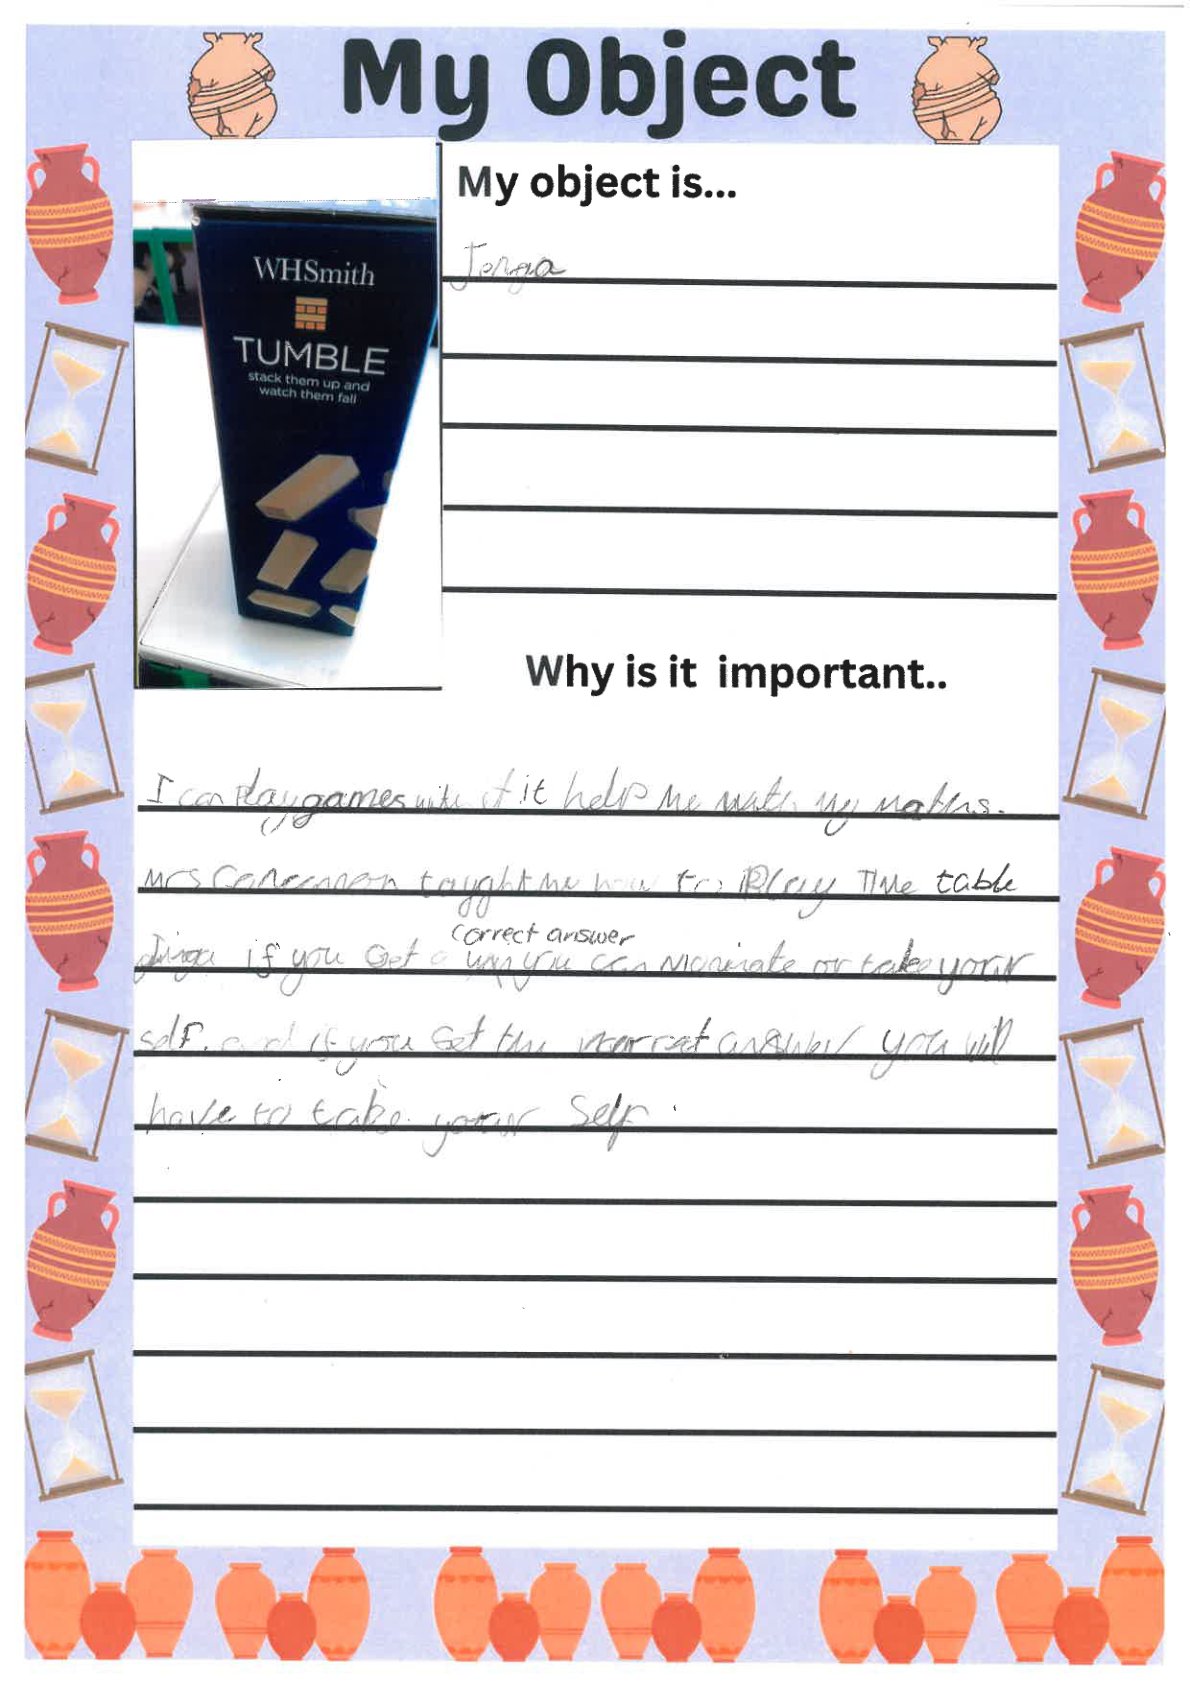 My Object
My object is...
Jenga
WHSmith
TUMBLE
stack them up and
watch them fall
Why is it important..
I can play games with it it help me with my maths.
Mrs taught me how to Play Time table
Jinga if you Get a correct answer you can nominate or take your
self. and if you Get the incorrect answer you will
have to take your Self.